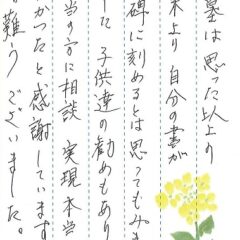 墓は思った以上
来より 自分の書が
碑に刻めるとは思ってもみま
した 子供達の勧めもあり
当の方に相談 実現本当
かったと感謝しています
難うございました。